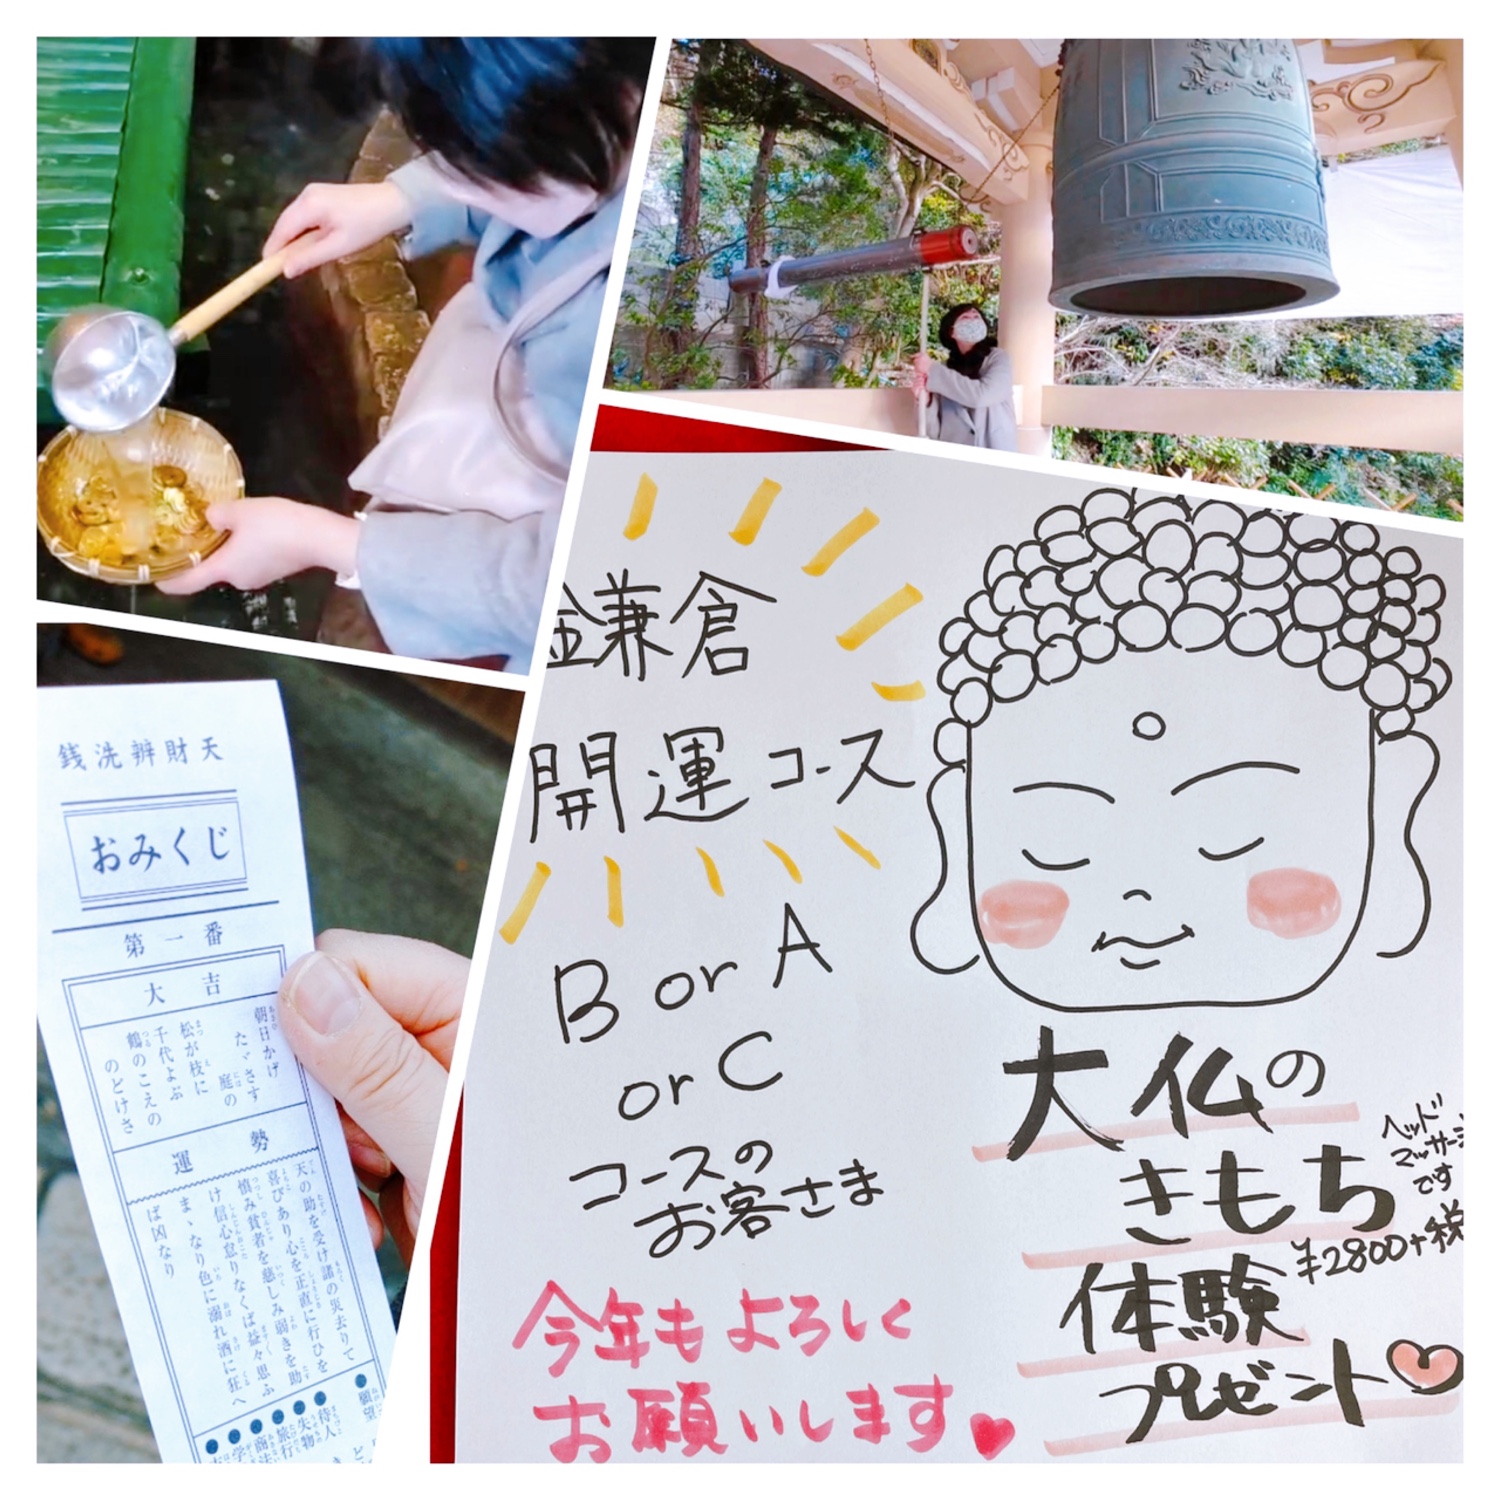 銭洗辨財天
おみくじ
第一番
大吉
朝日かげ
たゞさす
庭の
松が枝に
千代よぶ
鶴のこえの
のどけさ
運勢
天の助を受け諸の災去りて
喜びあり心を正直に行ひを
慎み貧者を慈しみ弱きを助
け信心怠りなくば益々思ふ
まゝなり色に溺れ酒に狂へ
ば凶なり
願望
待人
失物
旅行
商法
学
鎌倉
開運コース
B or A
or C
コースの
お客さま
今年もよろしく
お願いします
大仏の
きもち
体験
プレゼント
ヘッド
マッサージ
です
¥2800+税